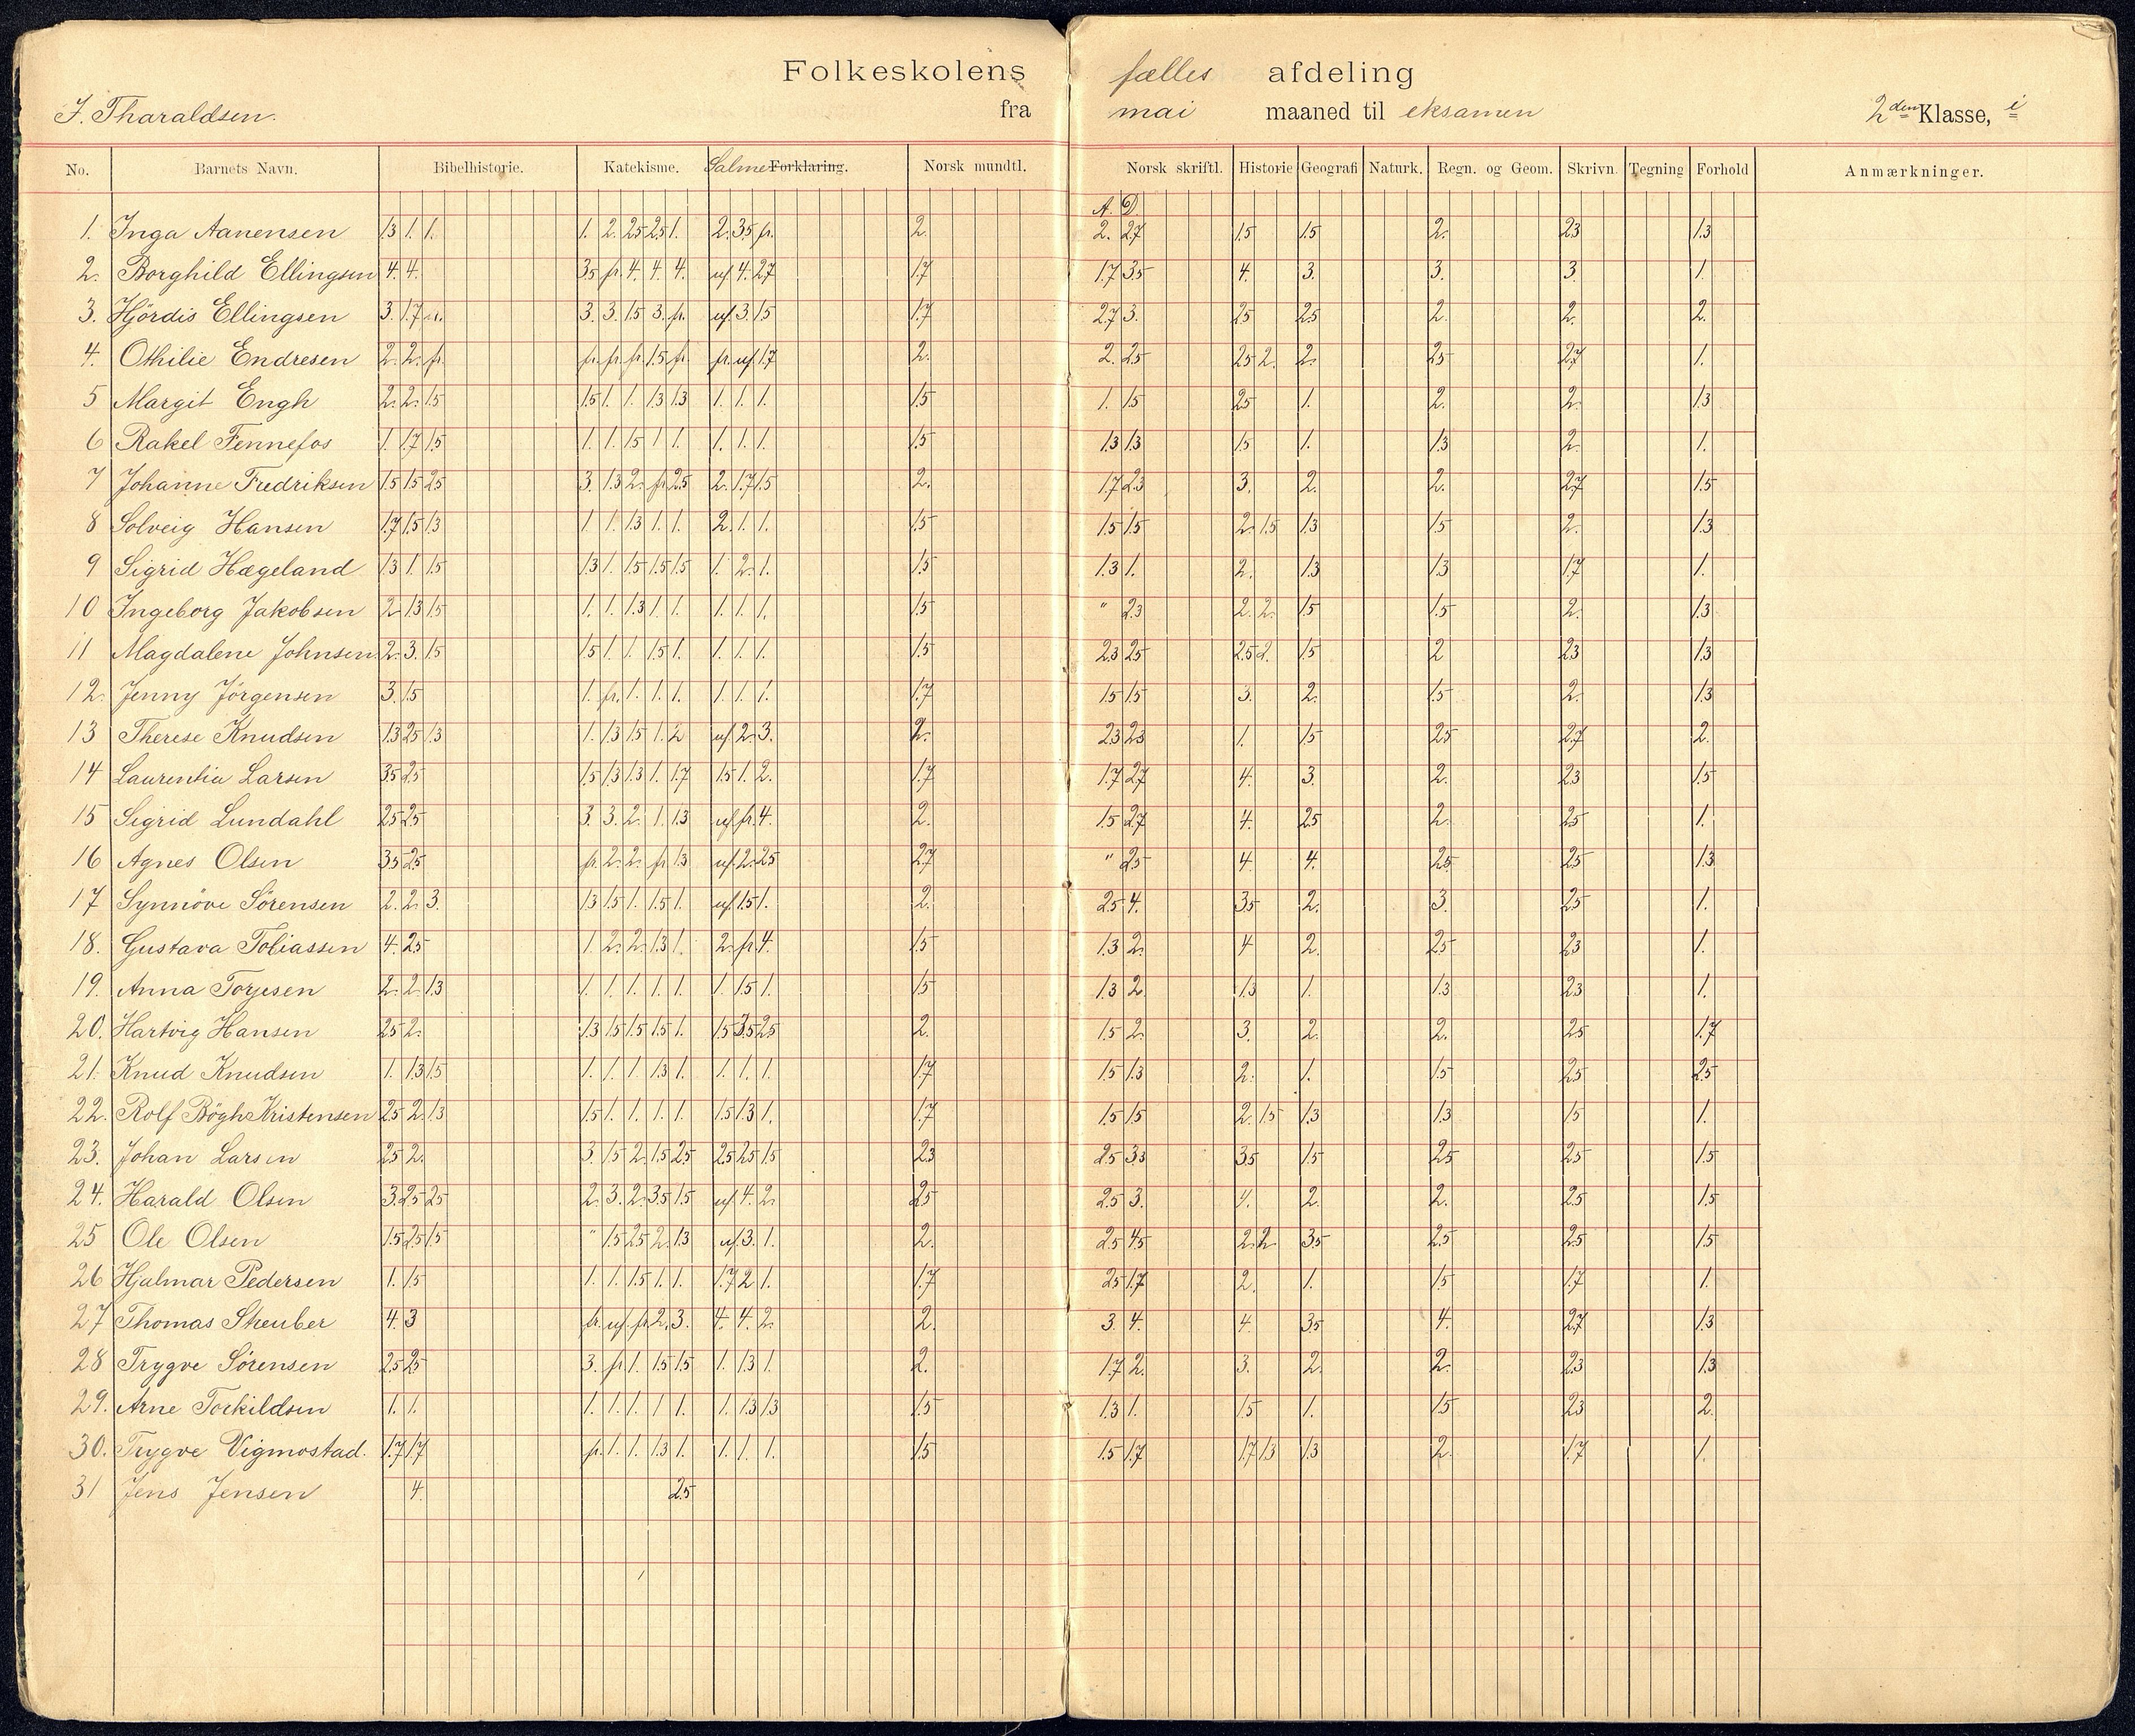 Folkeskolens fælles afdeling
J. Tharaldsen. fra mai maaned til eksamen 2den Klasse, i
No. Barnets Navn. Bibelhistorie. Katekisme. Salme Forklaring. Norsk mundtl. Norsk skriftl. Historie Geografi Naturk. Regn. og Geom. Skrivn. Tegning Forhold Anmærkninger.
A. D.
1. Inga Aanensen 1.3 1. 1. 1. 2. 2.5 2.5 1. 2. 3.5 fr. 2. 2. 2.7 1.5 1.5 2. 2.3 1.3
2. Borghild Ellingsen 4. 4. 3.5 fr. 4. 4. 4. uf. 4. 2.7 1.7 1.7 3.5 4. 3. 3. 3. 1.
3. Hjördis Ellingsen 3. 1.7 3. 3. 1.5 3. fr. uf. 3. 1.5 1.7 2.7 3. 2.5 2.5 2. 2. 2.
4. Othilie Endresen 2. 2. fr. fr. fr. fr. 1.5 fr. fr. uf. 1.7 2. 2. 2.5 2.5 2. 2. 2.5 2.7 1.
5 Margit Engh 2. 2. 1.5 1.5 1. 1. 1.3 1.3 1. 1. 1. 1.5 1. 1.5 2.5 1. 2. 2. 1.3
6 Rakel Fennefos 1. 1.7 1.5 1. 1. 1.5 1 1. 1. 1. 1. 1.5 1.3 1.3 1.5 1. 1.3 2. 1.
7 Johanne Fredriksen 1.5 1.5 2.5 3. 1.3 2. fr 2.5 2. 1.7 1.5 2. 1.7 2.3 3. 2. 2. 2.7 1.5
8 Solveig Hansen 1.7 1.5 1.3 1 1. 1.3 1. 1. 2. 1. 1. 1.5 1.5 1.5 2. 1.5 1.3 1.5 2. 1.3
9 Sigrid Hægeland 1.3 1. 1.5 1.3 1. 1.5 1.5 1.5 1. 2. 1. 1.5 1.3 1. 2. 1.3 1.3 1.7 1.
10 Ingeborg Jakobsen 2. 1.3 1.5 1. 1. 1.3 1. 1. 1. 1. 1. 1.5 " 2.3 2. 2. 1.5 1.5 2. 1.3
11 Magdalene Johnsen. 2. 3. 1.5 1.5 1. 1. 1.5 1. 1. 1. 1. 1.5 2.3 2.5 2.5 2. 1.5 2 2.3 1.3
12. Jenny Jörgensen 3. 1.5 1. fr. 1. 1. 1. 1. 1. 1. 1.7 1.5 1.5 3. 2. 1.5 2. 1.3
13 Therese Knudsen 1.3 2.5 1.3 1. 1.3 1.5 1. 2 uf. 2. 3. 2. 2.3 2.3 1. 1.5 2.5 2.7 2.
14 Laurentia Larsen 3.5 2.5 1.5 1.3 1.3 1. 1.7 1.5 1. 2. 1.7 1.7 2.7 4. 3. 2. 2.3 1.5
15 Sigrid Lundahl 2.5 2.5 3. 3. 2. 1. 1.3 uf. fr. 4. 2. 1.5 2.7 4. 2.5 2. 2.5 1.
16 Agnes Olsen 3.5 2.5 fr. 2. 2. fr 1.3 uf. 2. 2.5 2.7 " 2.5 4. 4. 2.5 2.5 1.3
17 Synnöve Sörensen 2. 2. 3. 1.3 1.5 1. 1.5 1. uf. 1.5 1. 2. 2.5 4. 3.5 2. 3. 2.5 1.
18. Gustava Tobiassen 4. 2.5 1. 2. 2. 1.3 1. 2. fr. 4. 1.5 1.3 2. 4 2. 2.5 2.3 1.
19. Anna Torjesen 2. 2. 1.3 1. 1. 1. 1. 1. 1. 1.5 1. 1.5 1.3 2. 1.3 1. 1.3 2.3 1.
20. Hartvig Hansen 2.5 2. 1.3 1.5 1.5 1.5 1. 1.5 3.5 2.5 2. 1.5 2. 3. 2. 2. 2.5 1.7
21. Knud Knudsen 1. 1.3 1.5 1. 1. 1. 1.3 1. 1. 1. 1. 1.7 1.5 1.3 2. 1. 1.5 2.5 2.5
22. Rolf Bögh Kristensen 2.5 2. 1.3 1.5 1. 1. 1. 1. 1.5 1.3 1. 1.7 1.5 1.5 2. 1.5 1.3 1.3 1.5 1.
23. Johan Larsen 2.5 2. 3. 1.5 2. 1.5 2.5 2.5 2.5 1.5 2.3 2.5 3.3 3.5 1.5 2.5 2.5 1.5
24. Harald Olsen 3. 2.5 2.5 2. 3. 2. 3.5 1.5 uf. 4. 2. 2.5 2.5 3. 4. 2. 2. 2.5 1.5
25 Ole Olsen 1.5 2.5 1.5 " 1.5 2.5 2. 1.3 uf. 3. 1. 2. 2.5 4.5 2. 2. 3.5 2.5 2.5 1.5
26 Hjalmar Pedersen 1. 1.5 1. 1. 1.5 1. 1. 1.7 2. 1. 1.7 2.5 1.7 2. 1. 1.5 1.7 1.
27 Thomas Steuber 4. 3 fr. uf. fr. 2. 3. 4. 4. 2. 2. 3. 4. 4. 3.5 4. 2.7 1.3
28 Trygve Sörensen 2.5 2.5 3. fr. 1. 1.5 1.5 1. 1.3 1. 2. 1.7 2. 3. 2. 2. 2.3 1.3
29. Arne Torkildsen 1. 1. 1. 1. 1. 1 1. 1. 1.3 1.3 1.5 1.3 1. 1.5 1. 1.5 2.3 2.
30. Trygve Vigmostad. 1.7 1.7 fr. 1. 1. 1.3 1. 1. 1. 1. 1.5 1.5 1.7 1.7 1.3 1.3 2. 1.7 1.
31 Jens Jensen 4. 2.5